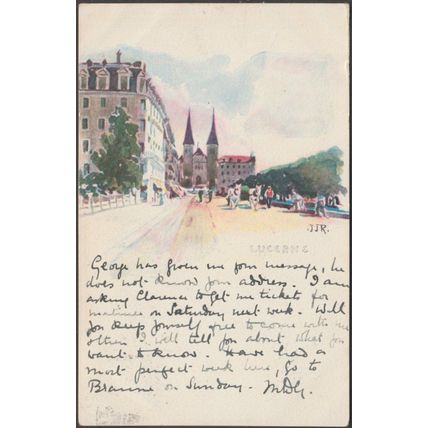 J.J.R.
LUCERNE
George has given me your message, he
does not know your address. I am
asking Clarence to get me tickets for
matinee on Saturday next week. Will
you keep yourself free to come with me
then I will tell you about what you
want to know. Have had a
most perfect week here, Go to
on Sunday.